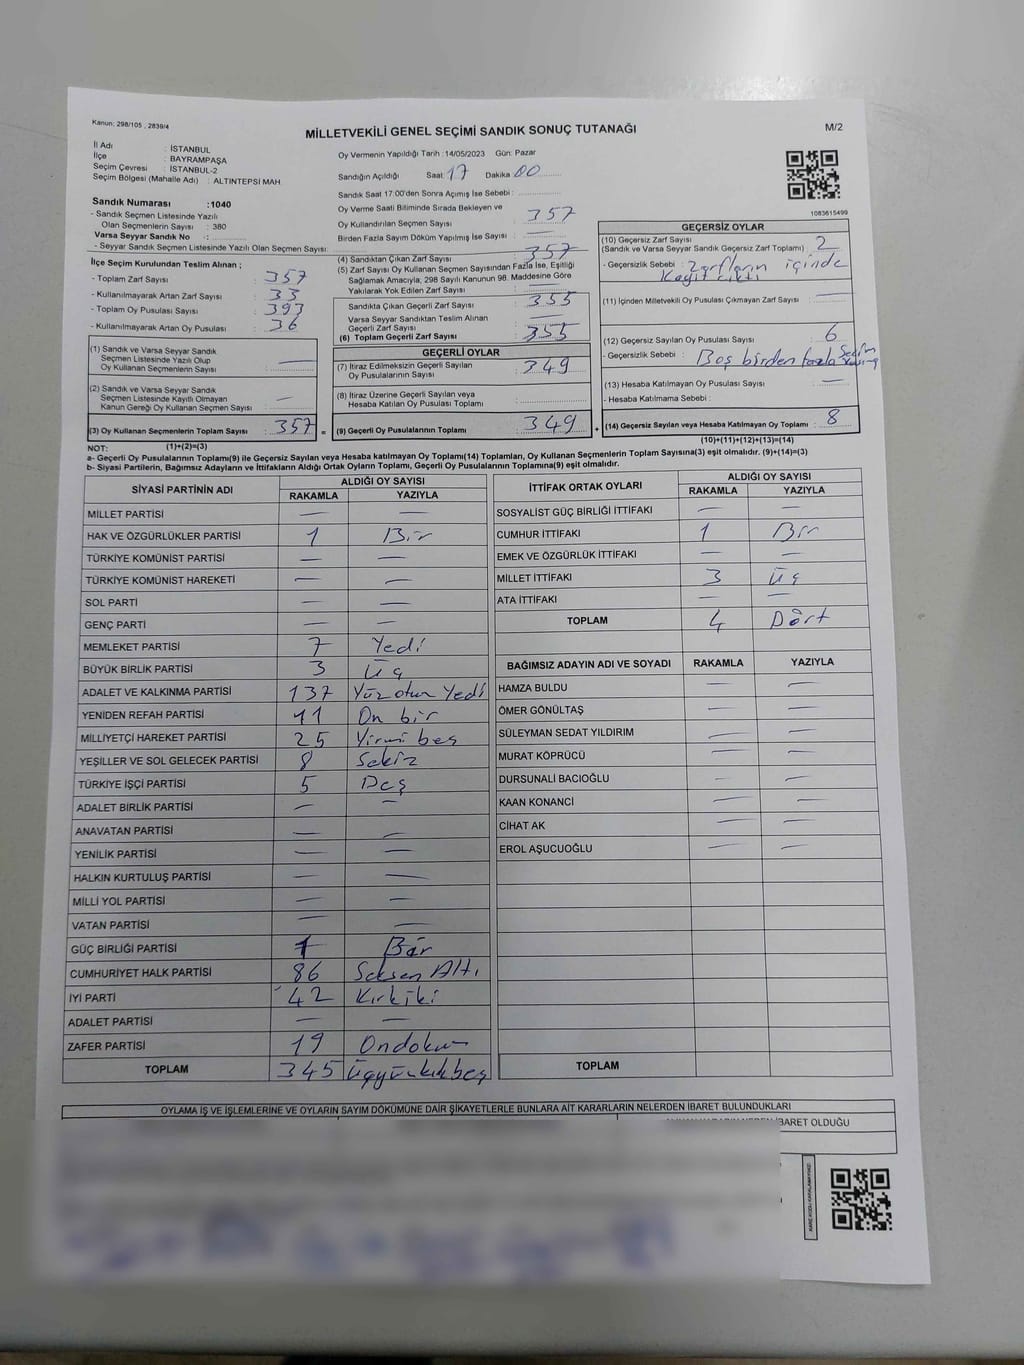 Kanun: 298/105 , 2839/4
MİLLETVEKİLİ GENEL SEÇİMİ SANDIK SONUÇ TUTANAĞI
M/2
İl Adı : İSTANBUL
İlçe : BAYRAMPAŞA
Seçim Çevresi : İSTANBUL-2
Seçim Bölgesi (Mahalle Adı) : ALTINTEPSİ MAH
Sandık Numarası :1040
- Sandık Seçmen Listesinde Yazılı
Olan Seçmenlerin Sayısı : 380
Varsa Seyyar Sandık No -:
- Seyyar Sandık Seçmen Listesinde Yazılı Olan Seçmen Sayısı:
İlçe Seçim Kurulundan Teslim Alınan ;
- Toplam Zarf Sayısı : 357
- Kullanılmayarak Artan Zarf Sayısı : 33
- Toplam Oy Pusulası Sayısı : 393
- Kullanılmayarak Artan Oy Pusulası : 36
(1) Sandık ve Varsa Seyyar Sandık
Seçmen Listesinde Yazılı Olup
Oy Kullanan Seçmenlerin Sayısı : —
(2) Sandık ve Varsa Seyyar Sandık
Seçmen Listesinde Kayıtlı Olmayan
Kanun Gereği Oy Kullanan Seçmen Sayısı : —
(3) Oy Kullanan Seçmenlerin Toplam Sayısı : 357 =
(1)+(2)=(3)
Oy Vermenin Yapıldığı Tarih :14/05/2023 Gün: Pazar
Sandığın Açıldığı Saat : 17 Dakika : 00
Sandık Saat 17:00'den Sonra Açımış İse Sebebi :
Oy Verme Saati Bitiminde Sırada Bekleyen ve
Oy Kullandırılan Seçmen Sayısı : 357
Birden Fazla Sayım Döküm Yapılmış İse Sayısı : —
(4) Sandıktan Çıkan Zarf Sayısı : 357
(5) Zarf Sayısı Oy Kullanan Seçmen Sayısından Fazla İse, Eşitliği
Sağlamak Amacıyla, 298 Sayılı Kanunun 98. Maddesine Göre
Yakılarak Yok Edilen Zarf Sayısı : —
Sandıkta Çıkan Geçerli Zarf Sayısı : 355
Varsa Seyyar Sandıktan Teslim Alınan
Geçerli Zarf Sayısı : —
(6) Toplam Geçerli Zarf Sayısı : 355
GEÇERLİ OYLAR
(7) İtiraz Edilmeksizin Geçerli Sayılan
Oy Pusulalarının Sayısı : 349
(8) İtiraz Üzerine Geçerli Sayılan veya
Hesaba Katılan Oy Pusulası Toplamı :
(9) Geçerli Oy Pusulalarının Toplamı : 349 +
1083615499
GEÇERSİZ OYLAR
(10) Geçersiz Zarf Sayısı
(Sandık ve Varsa Seyyar Sandık Geçersiz Zarf Toplamı) : 2
- Geçersizlik Sebebi : Zarfların içinde
Kağıt çıktı
(11) İçinden Milletvekili Oy Pusulası Çıkmayan Zarf Sayısı : —
(12) Geçersiz Sayılan Oy Pusulası Sayısı : 6
- Geçersizlik Sebebi : Boş birden fazla Seçim
(13) Hesaba Katılmayan Oy Pusulası Sayısı : —
- Hesaba Katılmama Sebebi :
(14) Geçersiz Sayılan veya Hesaba Katılmayan Oy Toplamı : 8
(10)+(11)+(12)+(13)=(14)
NOT:
a- Geçerli Oy Pusulalarının Toplamı(9) ile Geçersiz Sayılan veya Hesaba katılmayan Oy Toplamı(14) Toplamları, Oy Kullanan Seçmenlerin Toplam Sayısına(3) eşit olmalıdır. (9)+(14)=(3)
b- Siyasi Partilerin, Bağımsız Adayların ve İttifakların Aldığı Ortak Oyların Toplamı, Geçerli Oy Pusulalarının Toplamına(9) eşit olmalıdır.
SİYASİ PARTİNİN ADI ALDIĞI OY SAYISI
RAKAMLA YAZIYLA
MİLLET PARTİSİ — —
HAK VE ÖZGÜRLÜKLER PARTİSİ 1 Bir
TÜRKİYE KOMÜNİST PARTİSİ — —
TÜRKİYE KOMÜNİST HAREKETİ — —
SOL PARTİ — —
GENÇ PARTİ — —
MEMLEKET PARTİSİ 7 Yedi
BÜYÜK BİRLİK PARTİSİ 3 Üç
ADALET VE KALKINMA PARTİSİ 137 Yüz otuz Yedi
YENİDEN REFAH PARTİSİ 11 On bir
MİLLİYETÇİ HAREKET PARTİSİ 25 Yirmi beş
YEŞİLLER VE SOL GELECEK PARTİSİ 8 Sekiz
TÜRKİYE İŞÇİ PARTİSİ 5 Beş
ADALET BİRLİK PARTİSİ — —
ANAVATAN PARTİSİ — —
YENİLİK PARTİSİ — —
HALKIN KURTULUŞ PARTİSİ — —
MİLLİ YOL PARTİSİ — —
VATAN PARTİSİ — —
GÜÇ BİRLİĞİ PARTİSİ 1 Bir
CUMHURİYET HALK PARTİSİ 86 Seksen Altı
İYİ PARTİ 42 Kırkiki
ADALET PARTİSİ — —
ZAFER PARTİSİ 19 Ondokuz
TOPLAM 345 Üçyüzkırkbeş
İTTİFAK ORTAK OYLARI ALDIĞI OY SAYISI
RAKAMLA YAZIYLA
SOSYALİST GÜÇ BİRLİĞİ İTTİFAKI — —
CUMHUR İTTİFAKI 1 Bir
EMEK VE ÖZGÜRLÜK İTTİFAKI — —
MİLLET İTTİFAKI 3 Üç
ATA İTTİFAKI — —
TOPLAM 4 Dört
BAĞIMSIZ ADAYIN ADI VE SOYADI RAKAMLA YAZIYLA
HAMZA BULDU — —
ÖMER GÖNÜLTAŞ — —
SÜLEYMAN SEDAT YILDIRIM — —
MURAT KÖPRÜCÜ — —
DURSUNALİ BACIOĞLU — —
KAAN KONANCİ — —
CİHAT AK — —
EROL AŞUCUOĞLU — —
TOPLAM
OYLAMA İŞ VE İŞLEMLERİNE VE OYLARIN SAYIM DÖKÜMÜNE DAİR ŞİKAYETLERLE BUNLARA AİT KARARLARIN NELERDEN İBARET BULUNDUKLARI
İBARET OLDUĞU
KARE KODU KARALAMAYINIZ!